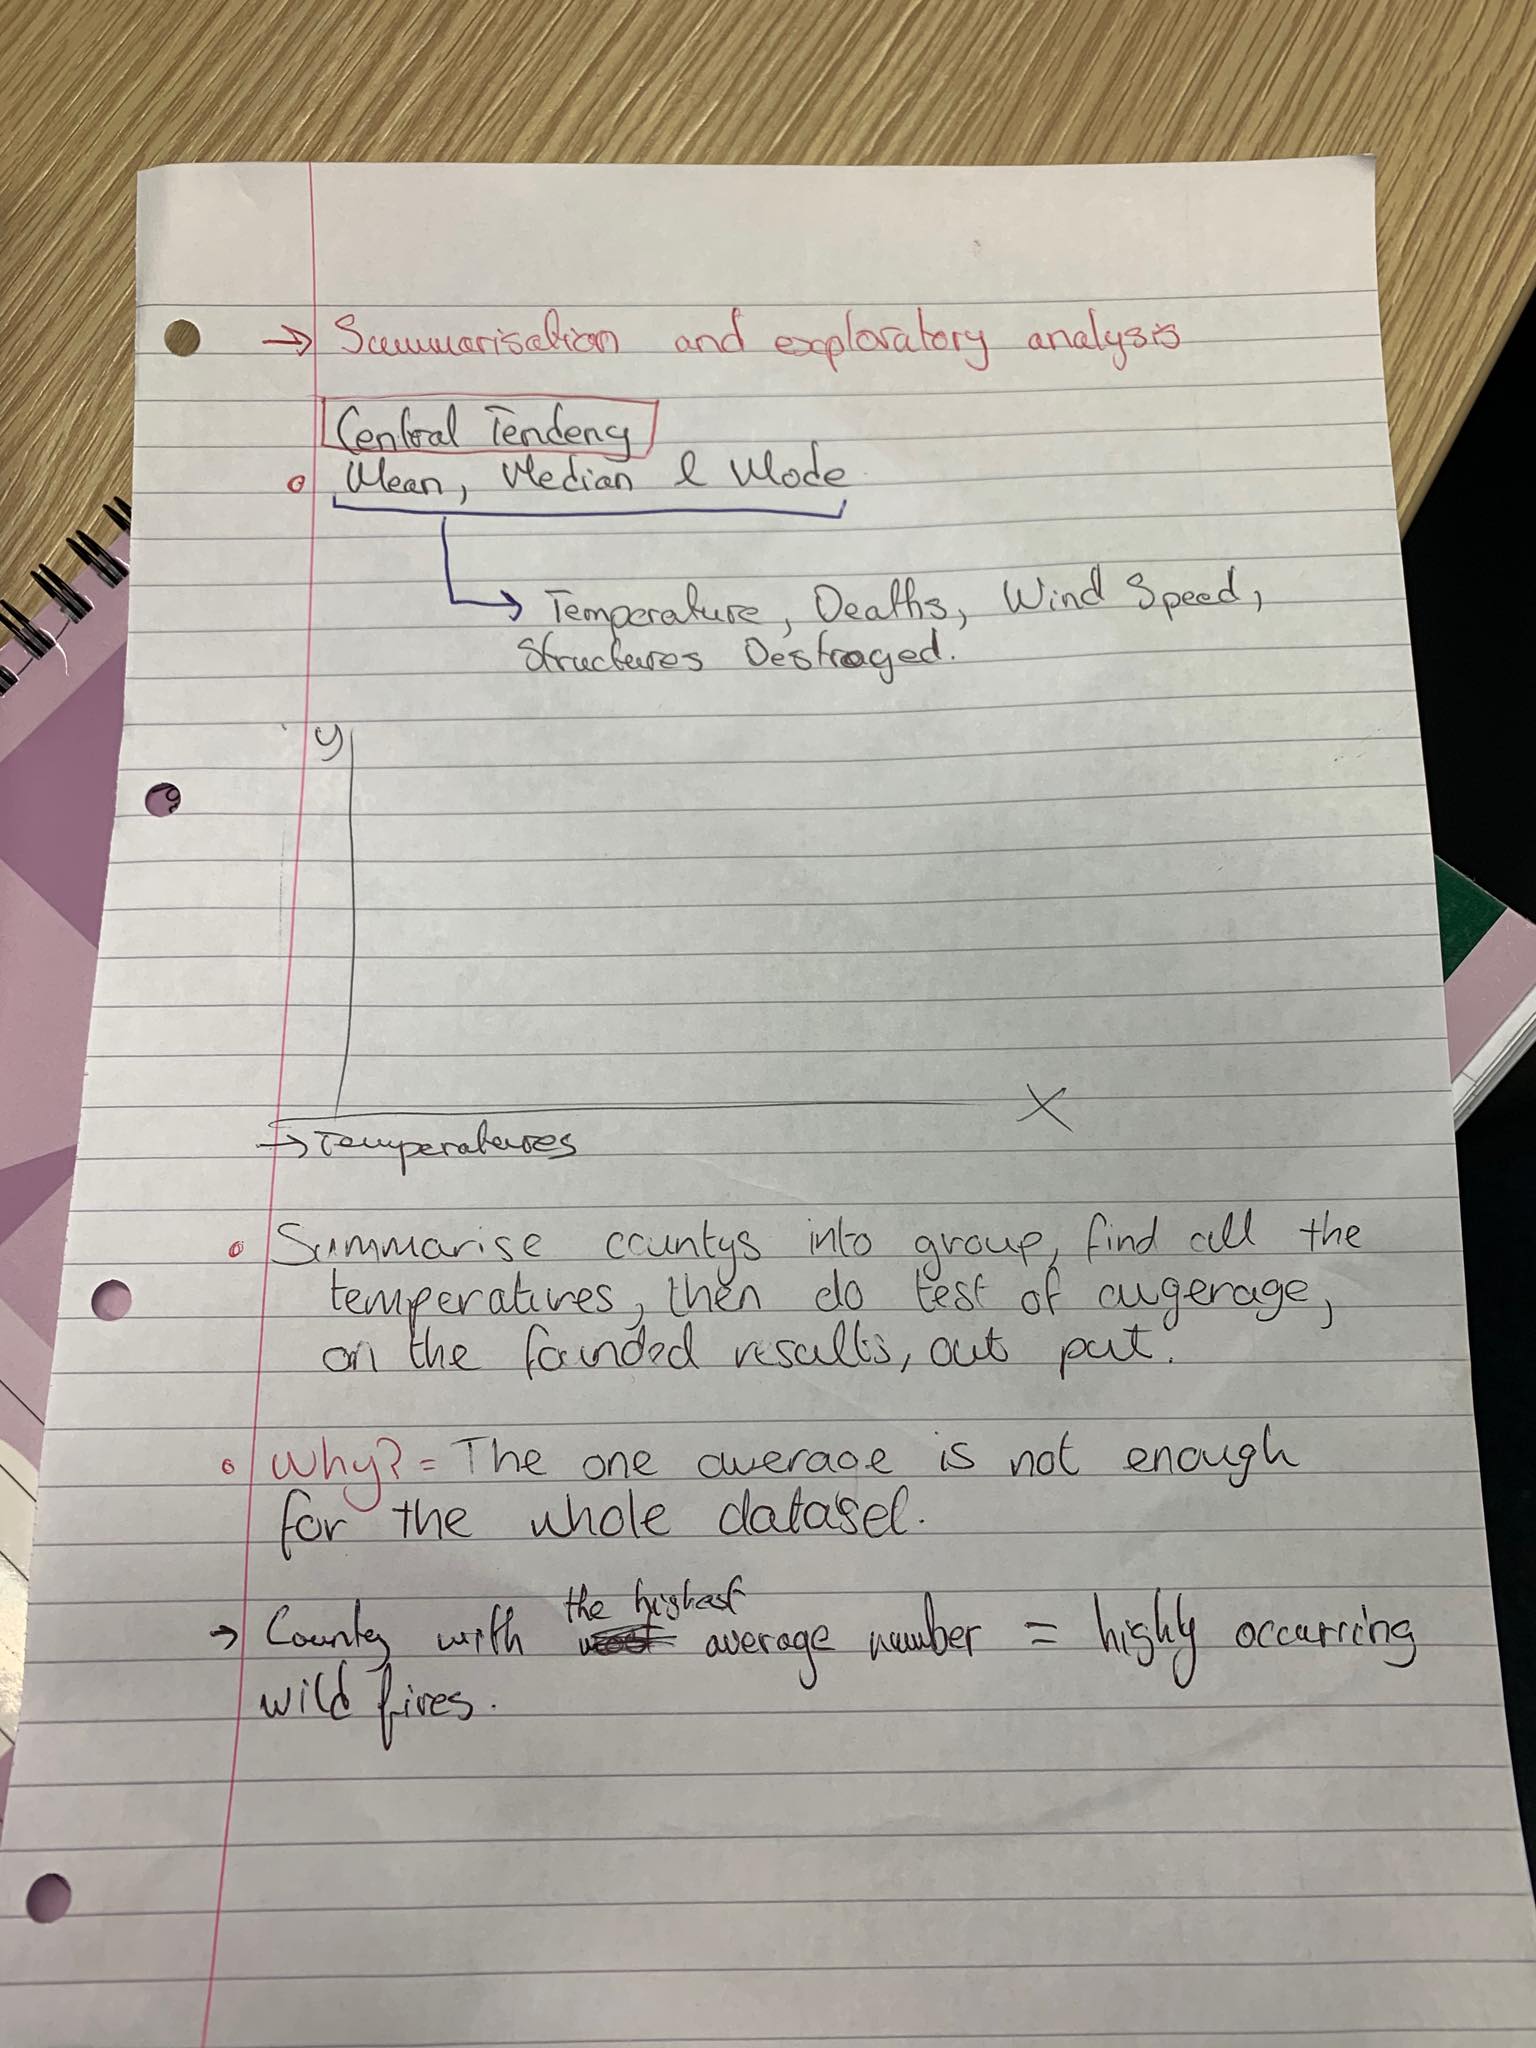 → Summarisation and exploratory analysis
Central Tendency
Mean, Median & Mode
→ Temperature, Deaths, Wind Speed,
Structures Destroyed.
y
X
→ Temperatures
Summarise countys into group, find all the
temperatures, then do test of avgerage,
on the founded results, out put.
Why? = The one average is not enough
for the whole dataset.
the highest
→ County with average number = highly occurring
wild fires.